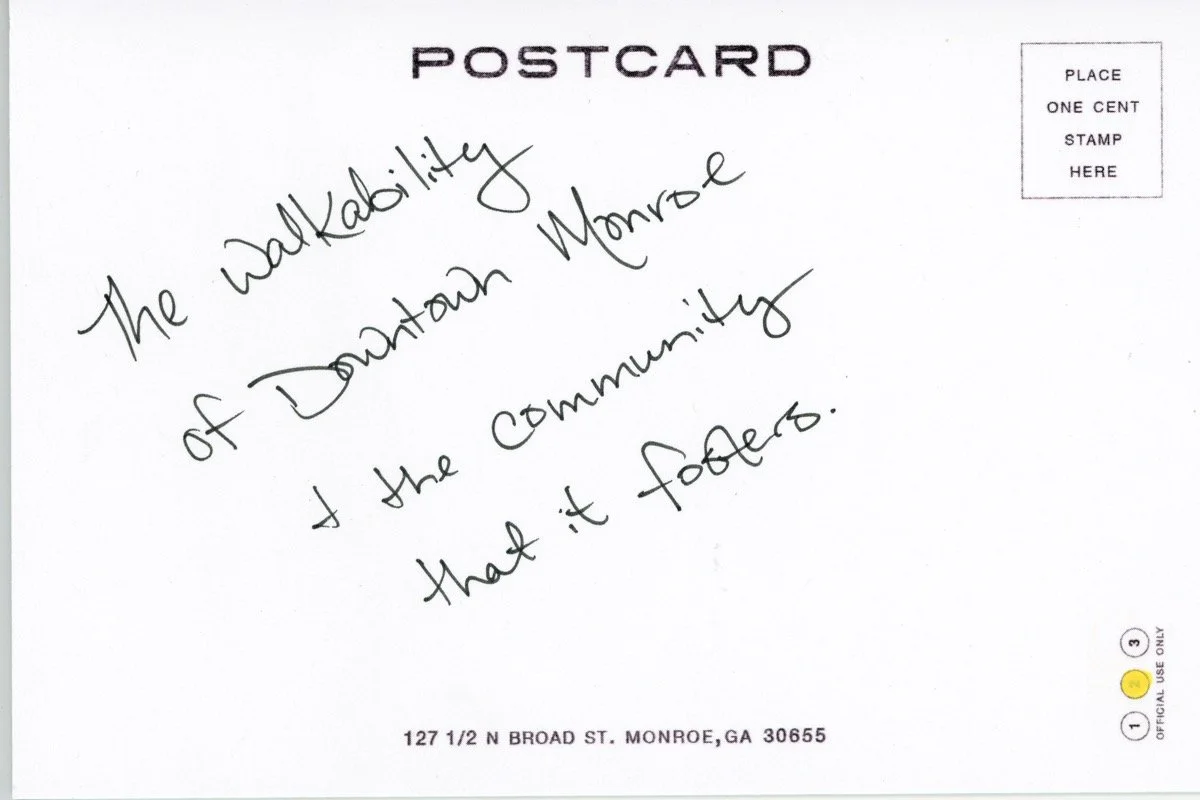 POSTCARD
PLACE
ONE CENT
STAMP
HERE
The walkability
of Downtown Monroe
+ the community
that it fosters.
127 1/2 N BROAD ST. MONROE, GA 30655
1 2 3
OFFICIAL USE ONLY